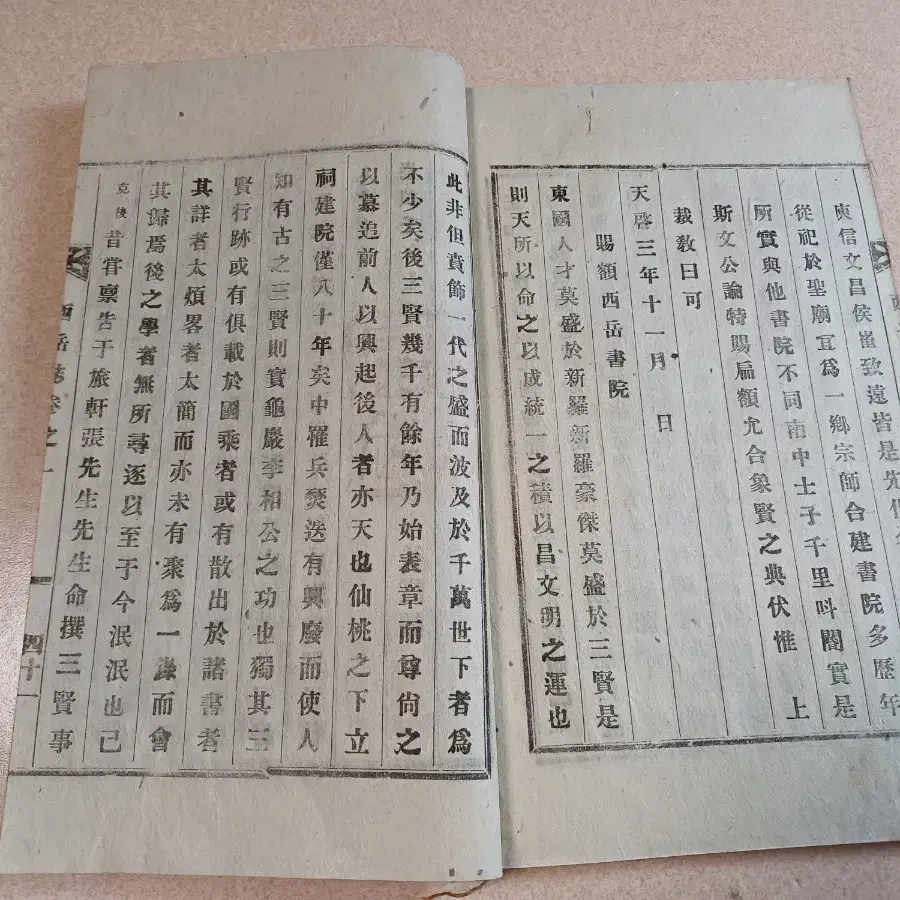 庾信文昌侯崔致遠皆是先代名
從祀於聖廟宜爲一鄕宗師合建書院多歷年
所實與他書院不同南中士子千里叫閽實是
斯文公論特賜扁額允合象賢之典伏惟 上
裁敎曰可
天啓三年十一月 日
賜額西岳書院
東國人才莫盛於新羅新羅豪傑莫盛於三賢是
則天所以命之以成統一之積以昌文明之運也
此非但賁飾一代之盛而波及於千萬世下者爲
不少矣後三賢幾千有餘年乃始表章而尊尙之
以慕追前人以興起後人者亦天也仙桃之下立
祠建院僅八十年矣中罹兵燹迭有興廢而使人
知有古之三賢則實龜巖李相公之功也獨其三
賢行跡或有俱載於國乘者或有散出於諸書者
其詳者太煩畧者太簡而亦未有聚爲一錄而會
其歸焉後之學者無所尋逐以至于今泯泯也已
克後昔嘗稟告于旅軒張先生先生命撰三賢事
西岳誌卷之一 四十一